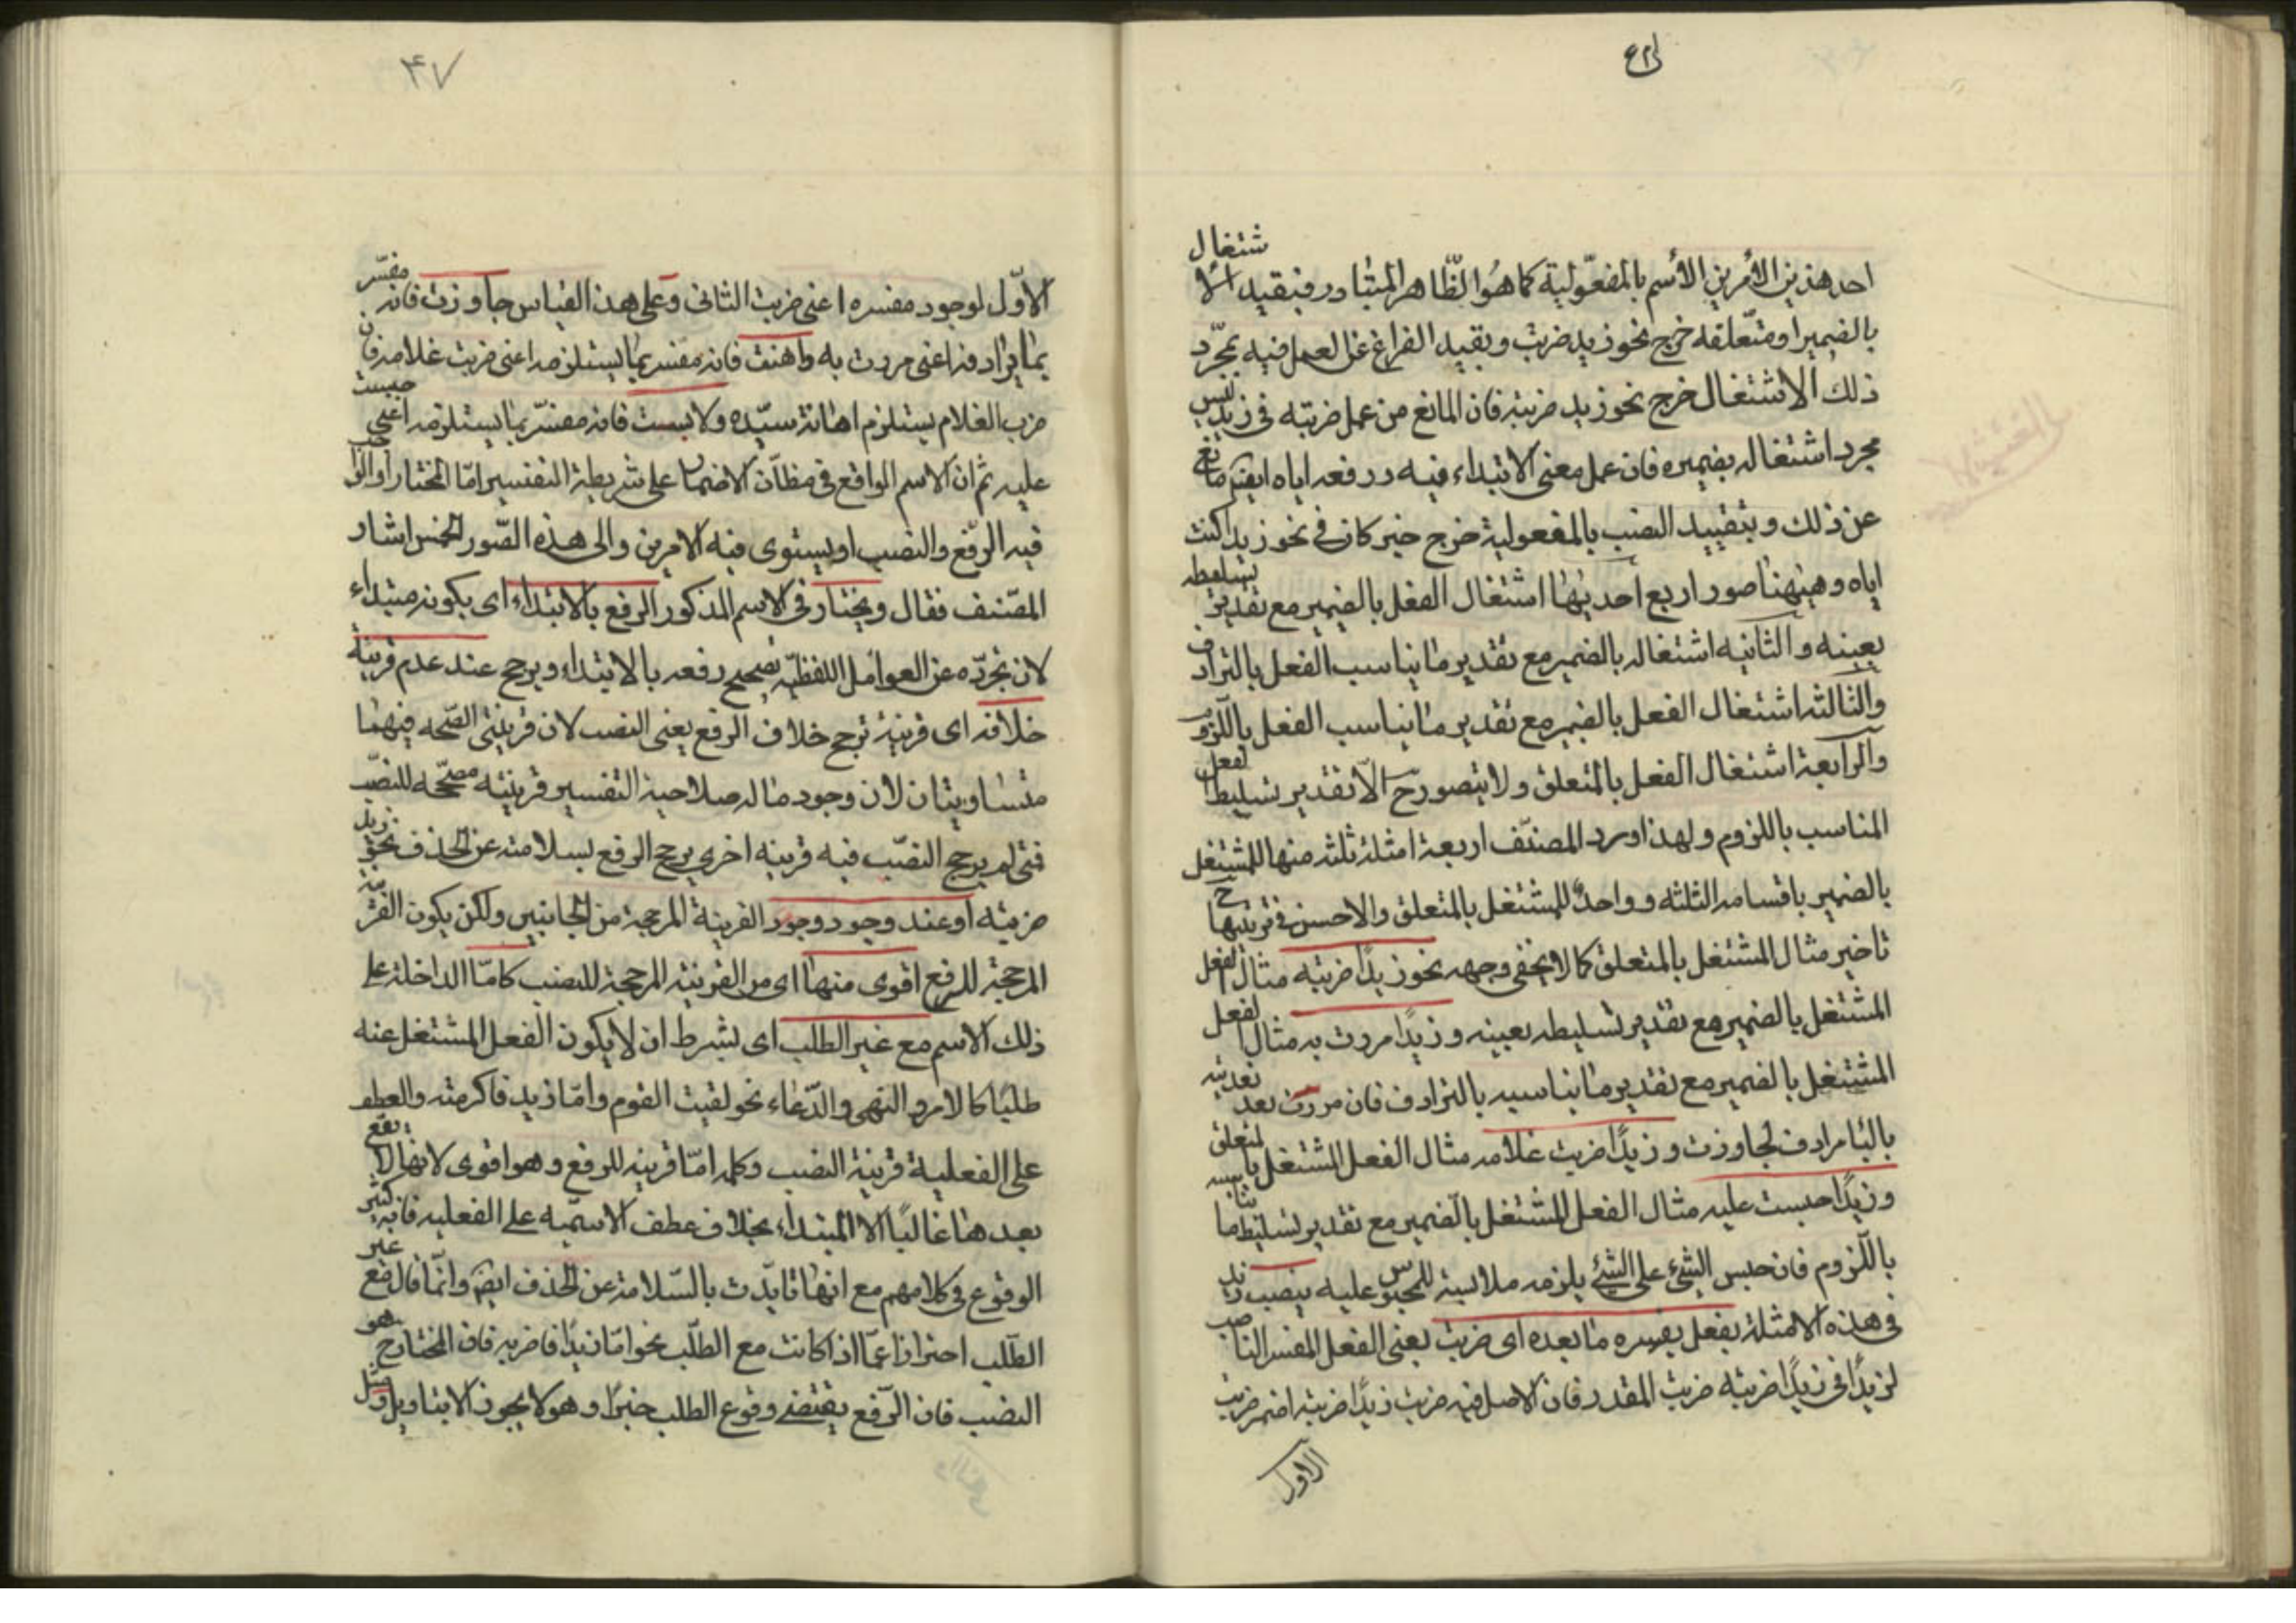 احد هذين الأمرين الأسم بالمفعولية كما هو الظاهر المتبادر فبقيد الاشتغال
بالضمير او متعلقه خرج نحو زيد ضربت وبقيد الفراغ عن العمل فيه بمجرّد
ذلك الاشتغال خرج نحو زيد ضربته فان المانع من عمل ضربته في زيد ليس
مجرد اشتغاله بضميره فان عمل معنى الابتداء فيه ورفعه اياه ايضا مانع
عن ذلك وبتقييد النصب بالمفعولية خرج خبر كان في نحو زيدا كنت
اياه وههنا صور اربع احديها اشتغال الفعل بالضمير مع تقدير تسليطه
بعينه والثانيه اشتغاله بالضمير مع تقدير ما يناسب الفعل بالترادف
والثالثه اشتغال الفعل بالضمير مع تقدير ما يناسب الفعل باللزوم
والرابعة اشتغال الفعل بالمتعلق ولا يتصور ح الّا تقدير تسليط الفعل
المناسب باللزوم ولهذا اورد المصنّف اربعة امثلة ثلثه منها للمشتغل
بالضمير باقسامه الثلثه وواحدٌ للمشتغل بالمتعلق والاحسن في ترتيبها ح
تاخير مثال المشتغل بالمتعلق كما لا يخفى وجهه نحو زيدًا ضربته مثال الفعل
المشتغل بالضمير مع تقدير تسليطه بعينه وزيدًا مررت به مثال الفعل
المشتغل بالضمير مع تقدير ما يناسبه بالترادف فان مررت بعد تعديته
بالبا مرادف لجاوزت وزيدًا ضربت غلامه مثال الفعل المشتغل بالمتعلق
وزيدًا حبست عليه مثال الفعل المشتغل بالضمير مع تقدير تسليط ما يناسبه
باللزوم فان حبس الشئ على الشئ يلزمه ملابسة المحبوس عليه ينصب زيد
في هذه الامثلة بفعل يفسره ما بعده اى ضربت يعنى الفعل المفسر الناصب
لزيدًا فى زيدًا ضربته ضربت المقدر فان الاصل فيه ضربت زيدًا ضربته اضمر ضربت
الاول
۴۷
الاوّل لوجود مفسره اعنى ضربت الثانى وعلى هذا القياس جاوزت فانه مفسّر
بما يرادفه اعنى مررت به واهنت فانه مفسر بما يستلزمه اعنى ضربت غلامه فان
ضرب الغلام يستلزم اهانة سيّده ولابست فانه مفسّر بما يستلزمه اعنى حبست
عليه ثم ان الاسم الواقع فى مظانّ الاضمار على شريطة التفسير امّا المختار او الواجب
فيه الرفع والنصب او يستوى فيه الامرين والى هذه الصّور الخمس اشار
المصّنف فقال ويختار فى الاسم المذكور الرفع بالابتداء اى بكونه مبتداء
لان تجرّده عن العوامل اللفظيّه يصحح رفعه بالابتداء ويرجح عند عدم قرينة
خلافه اى قرينة ترجح خلاف الرفع يعنى النصب لان قرينتى الصّحه فيهما
متساويتان لان وجود ما له صلاحية التفسير قرينته مصحّحه للنصب
فتى لم يرجح النصّب فيه قرينه اخرى يرجح الرفع بسلامته عن الحذف نحو زيد
ضربته او عند وجود وجود القرينة المرجحة من الجانبين ولكن يكون القرينة
المرجحة للرفع اقوى منها اى من القرينة المرجحة للنصب كامّا الداخلة على
ذلك الاسم مع غير الطلب اى بشرط ان لا يكون الفعل المشتغل عنه
طلبًا كالامر والنهى والدّعاء نحو لقيت القوم وامّا زيد فاكرمته والعطف
على الفعلية قرينة النصب وكلمه امّا قرينه للرفع وهو اقوى لانها لا يقع
بعدها غالبًا الا المبتداء بخلاف عطف الاسميّه على الفعليه فانه كثير
الوقوع فى كلامهم مع انها تايّدت بالسّلامة عن الحذف ايضا وانّما قال مع غير
الطّلب احترازا عمّا اذا كانت مع الطلّب نحو امّا زيدًا فاضربه فان المختار ح هو
النصب فان الرّفع يقتضى وقوع الطلب خبرًا وهو لا يجوز الا بتاويل